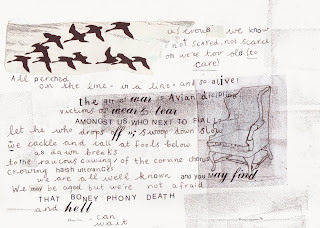 us crows we know
not scared, not scared
oh we're too old (to
care)
All perched
on the line - in a line - and so alive!
the art of war is Avian discipline
victims of wear & tear
AMONGST US WHO NEXT TO FALL?
let he who drops off, & swoop down slow
we cackle and call at fools below
as dawn breaks
to the raucous cawing/ of the corvine chorus
crowing harsh utterances
we are all well known and you may find
We may be aged but we're not afraid
THAT BONEY PHONY DEATH
and hell
can
wait